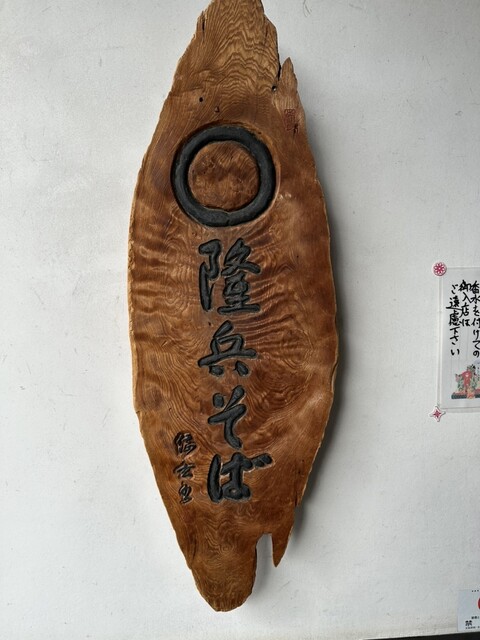 隆兵そば
香水を付けての
御入店は
ご遠慮下さい
禁